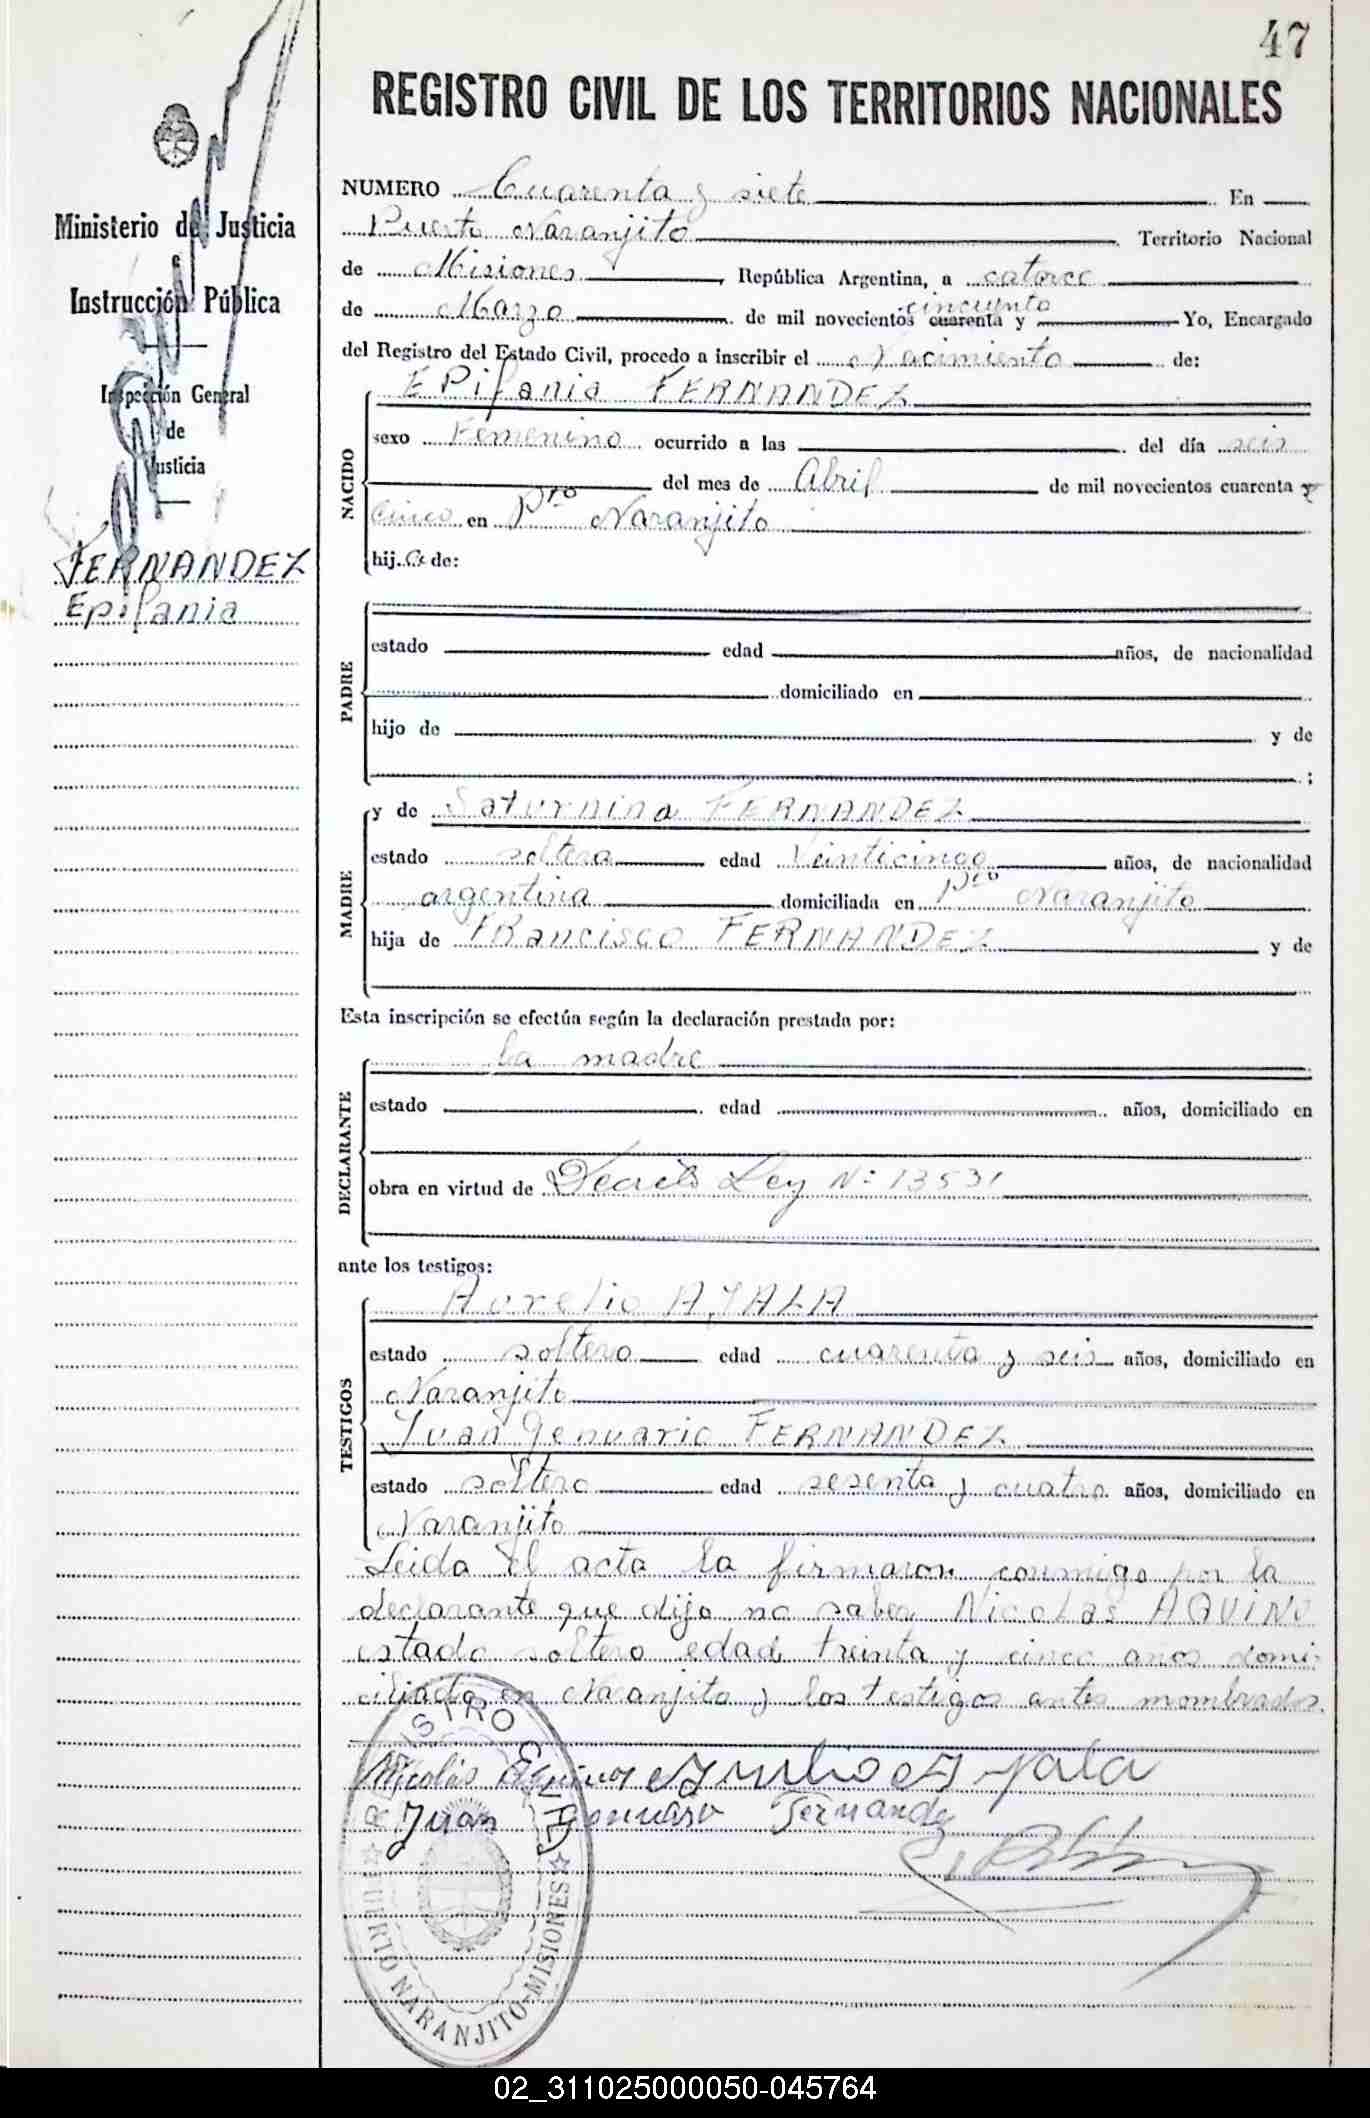 47
REGISTRO CIVIL DE LOS TERRITORIOS NACIONALES
Ministerio de Justicia
e
Instrucción Pública
Inspección General
de
Justicia
FERNANDEZ
Epifania
NUMERO Cuarenta y siete En
Puerto Naranjito Territorio Nacional
de Misiones, República Argentina, a catorce
de Marzo de mil novecientos cuarenta y cincuenta Yo, Encargado
del Registro del Estado Civil, procedo a inscribir el Nacimiento de:
EPifania FERNANDEZ
NACIDO
sexo Femenino ocurrido a las del día seis
del mes de Abril de mil novecientos cuarenta y
cinco en Pto Naranjito
hija de:
PADRE
estado edad años, de nacionalidad
domiciliado en
hijo de y de
;
MADRE
y de Saturnina FERNANDEZ
estado soltera edad Veinticinco años, de nacionalidad
argentina domiciliada en Pto Naranjito
hija de FRancisco FERNANDEZ y de
Esta inscripción se efectúa según la declaración prestada por:
DECLARANTE
la madre
estado edad años, domiciliado en
obra en virtud de Decreto Ley Nº 13531
ante los testigos:
TESTIGOS
Aurelio AYALA
estado soltero edad cuarenta y seis años, domiciliado en
Naranjito
Juan Genuario FERNANDEZ
estado soltero edad sesenta y cuatro años, domiciliado en
Naranjito
Leida el acta la firmaron conmigo por la
declarante que dijo no saber Nicolas AQUINO
estado soltero edad treinta y cinco años domi-
ciliado en Naranjito y los testigos antes nombrados.
Nicolás Ayala
Juan Fernandez
REGISTRO CIVIL
PUERTO NARANJITO-MISIONES
02_311025000050-045764